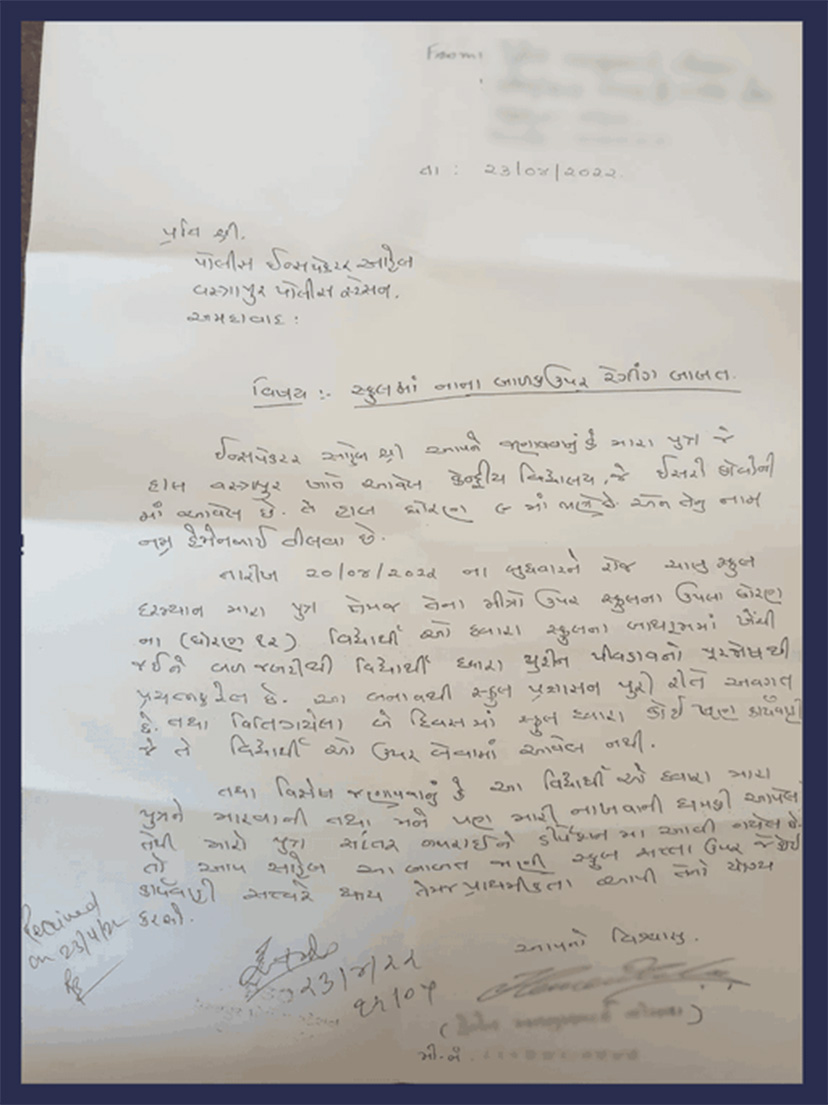 From:
તા : ૨૩/૦૪/૨૦૨૨.
પ્રતિ શ્રી.
પોલીસ ઈન્સપેકટર સાહેબ
વસ્ત્રાપુર પોલીસ સ્ટેસન.
અમદાવાદ :
વિષય :- સ્કુલમાં નાના બાળક ઉપર રેગીંગ બાબત.
ઈન્સપેકટર સાહેબ શ્રી આપને જણાવવાનું કે મારા પુત્ર જે
હાલ વસ્ત્રાપુર ખાતે આવેલ કેન્દ્રીય વિદ્યાલય, જે ઈસરો કોલોની
માં આવેલ છે. તે હાલ ધોરણ ૯ માં ભણે છે. અને તેનું નામ
છે.
તારીખ ૨૦/૦૪/૨૦૨૨ ના બુધવારને રોજ ચાલુ સ્કુલ
દરમ્યાન મારા પુત્ર તેમજ તેના મીત્રો ઉપર સ્કુલના ઉપલા ધોરણ
ના (ધોરણ ૧૨) વિદ્યાર્થી ઓ દ્વારા સ્કુલના બાથરૂમમાં ખેંચી
જઈને બળ જબરીથી વિદ્યાર્થી દ્વારા યુરીન પીવડાવનો પુરજોષથી
પ્રયત્ન કરેલ છે. આ બનાવથી સ્કુલ પ્રશાસન પુરી રીતે અવગત
છે. તથા વિતિગયેલા બે દિવસમાં સ્કુલ દ્વારા કોઈ પણ કાર્યવાહી
જે તે વિદ્યાર્થી ઓ ઉપર લેવામાં આવેલ નથી.
તથા વિસેષ જણાવવાનું કે આ વિદ્યાર્થી ઓ દ્વારા મારા
પુત્રને મારવાની તથા મને પણ મારી નાખવાની ધમકી આપેલ
તેથી મારો પુત્ર સંતર ગભરાઈને ડીપ્રેશન મા આવી ગયેલ છે.
તો આપ સાહેબ આ બાબત જાણી સ્કુલ સત્તા ઉપર જે કોઈ
કાર્યવાહી સત્વરે થાય તેમજ પ્રાથમીકતા આપી તેનો યોગ્ય
કરશો.
Received
on 23/4/22
આપનો વિશ્વાસુ.
૨૩/૪/૨૨
૧૨/૦૫
મો.નં.